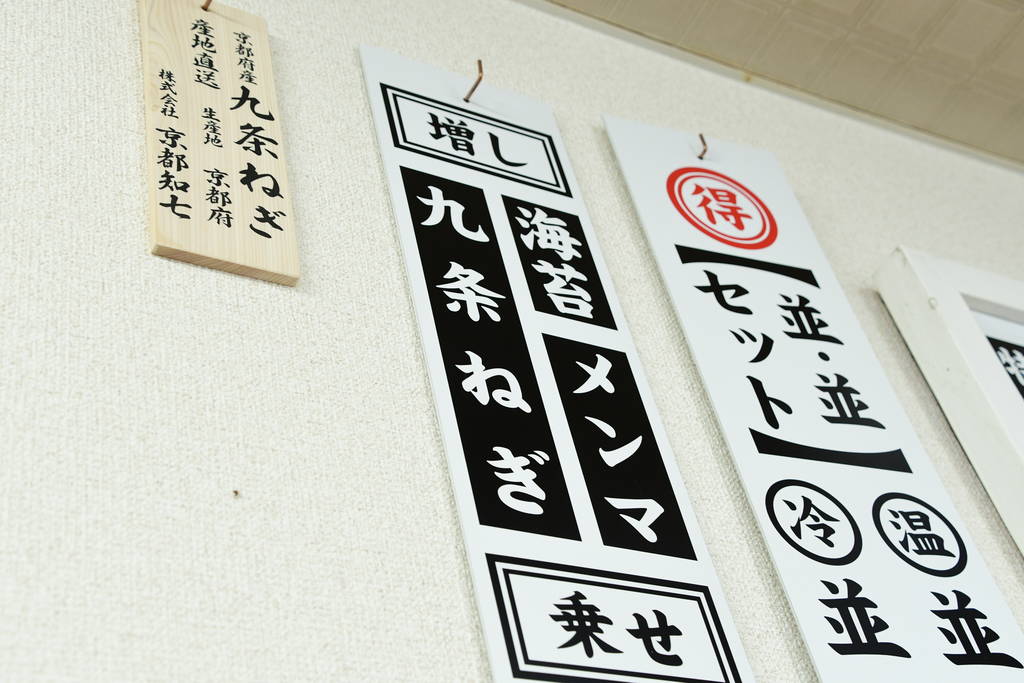 京都府産 九条ねぎ
産地直送 生産地 京都府
株式会社 京都知七
増し
海苔 メンマ
九条ねぎ
乗せ
得
並・並
セット
温 並
冷 並